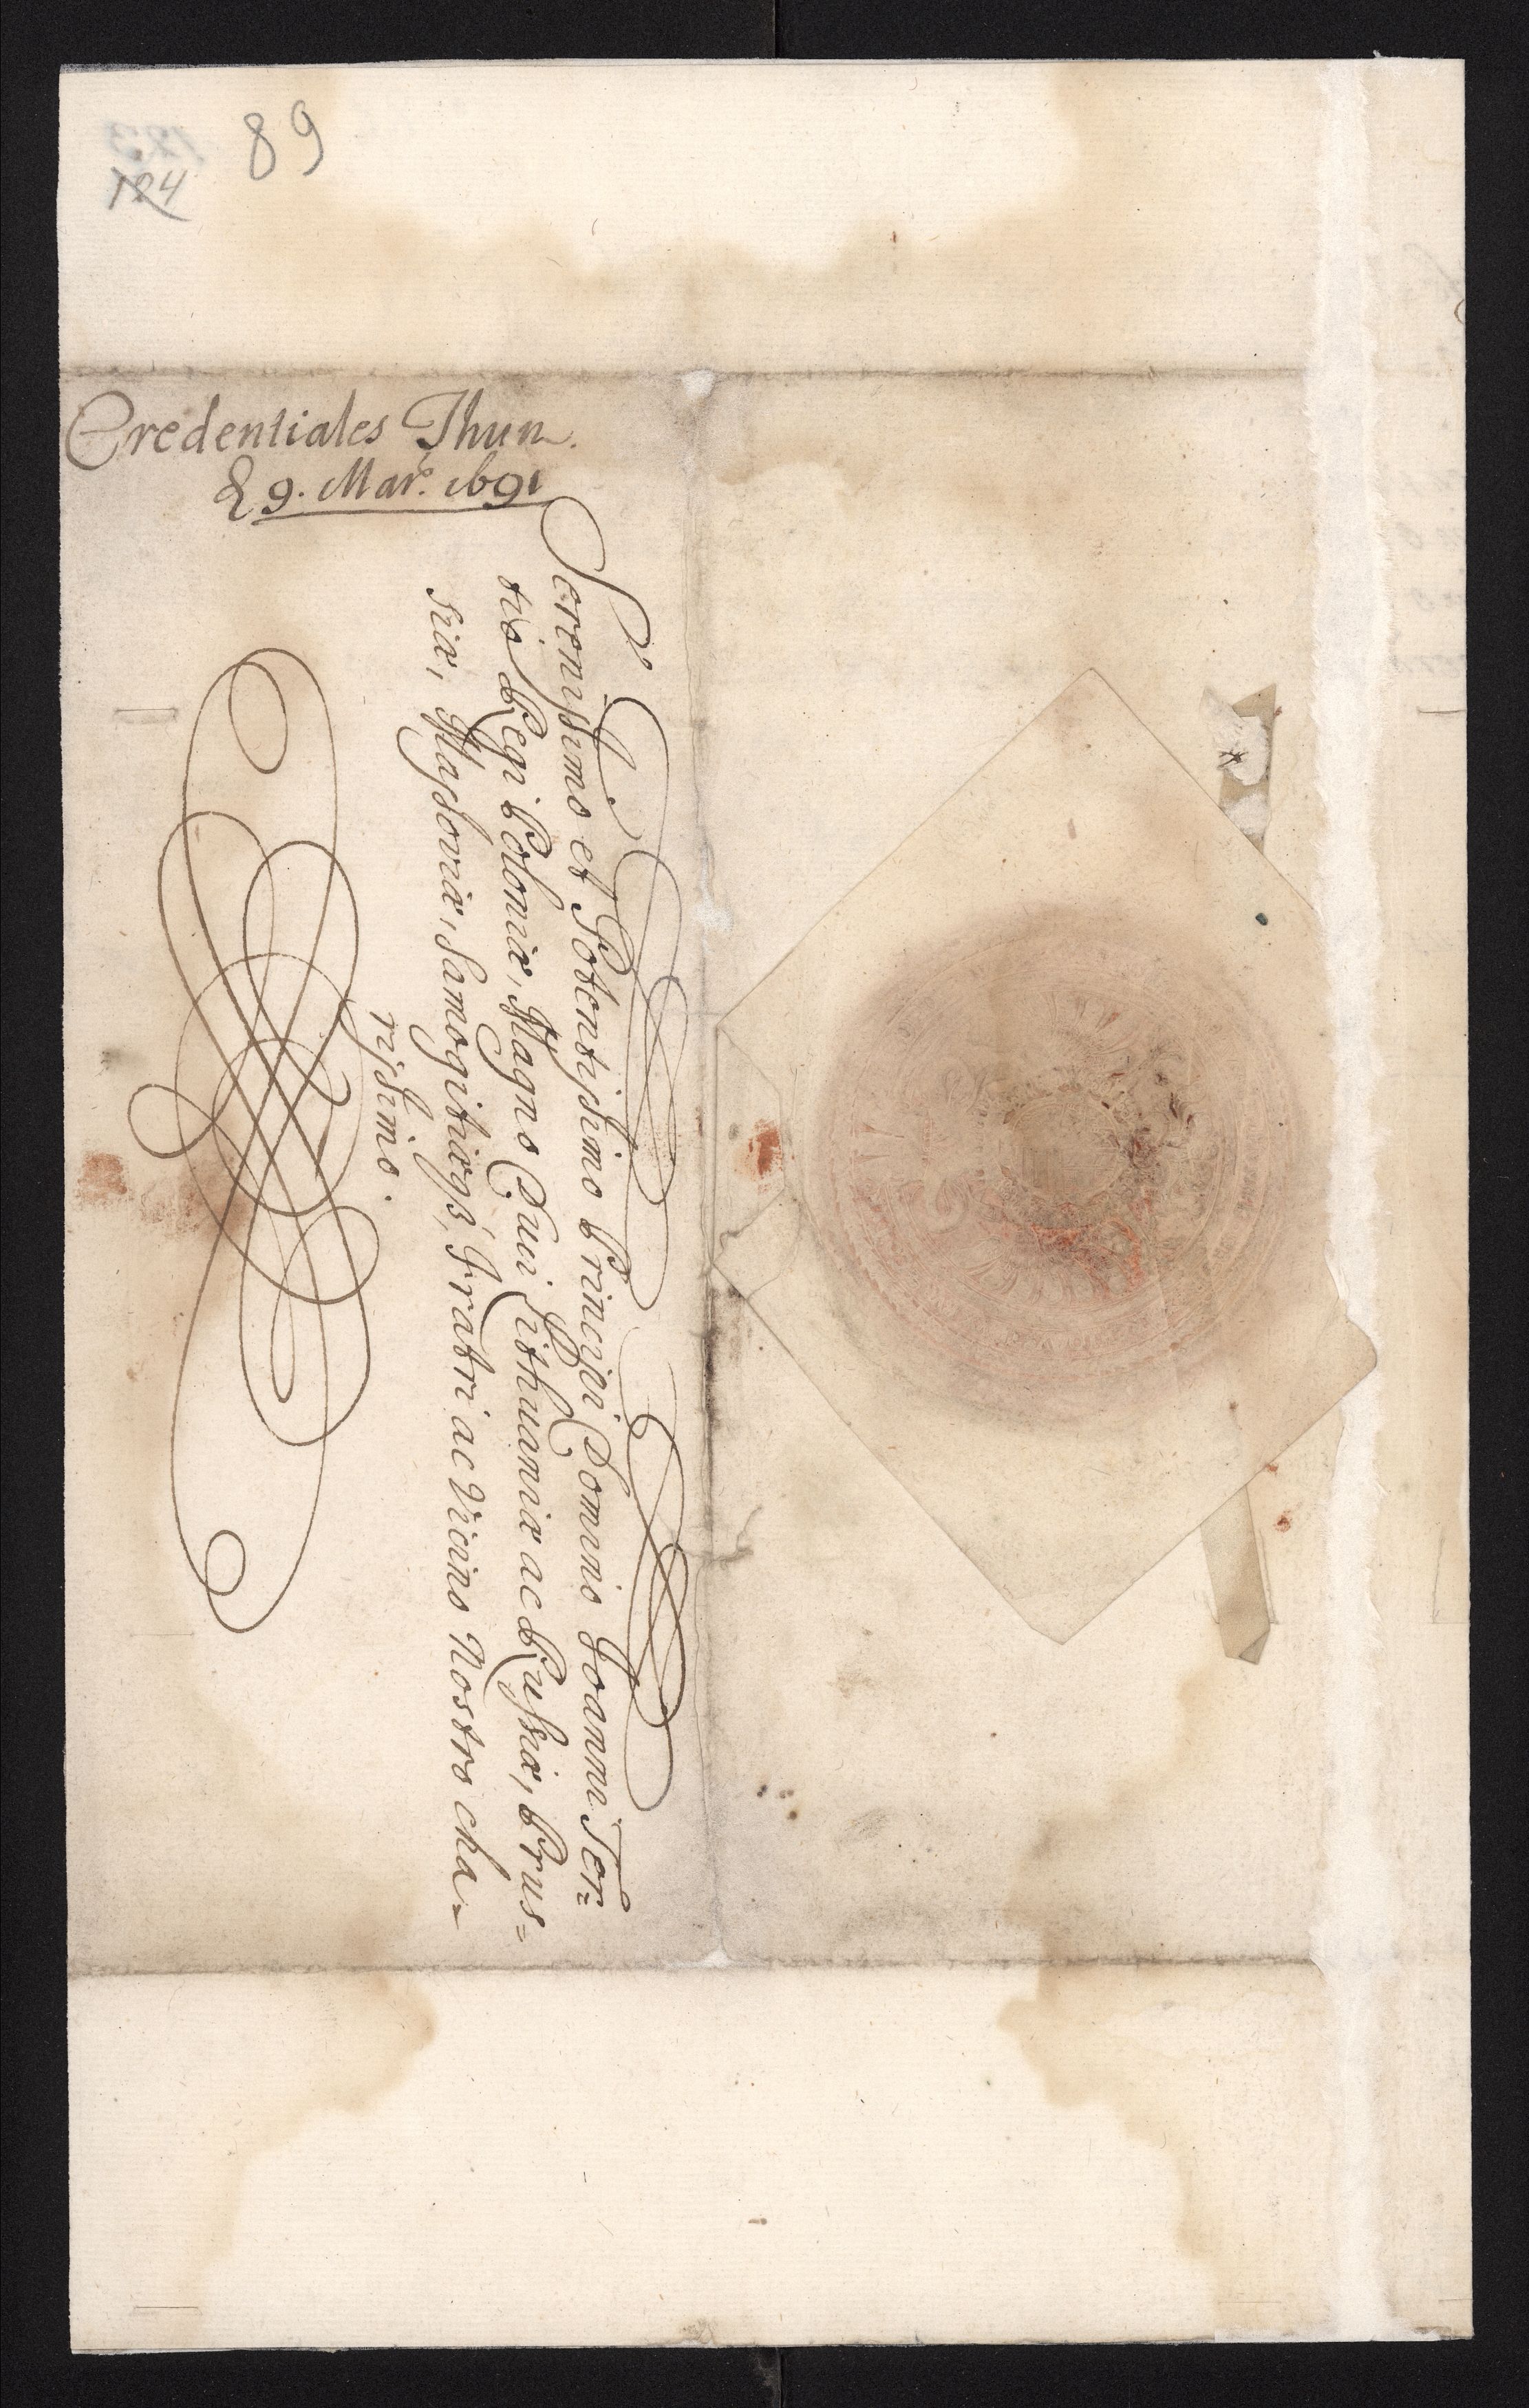 89
124
Credentiales Thun.
d 9. Mar. 1691
Serenissimo et Potentissimo Principi Domino Joanni Ter=
tio Regi Poloniæ, Magno Duci Lithuaniæ ac Russiæ, Prus=
siæ, Masoviæ, Samogitiæqs, Fratri ac Vicino Nostro cha=
rissimo.